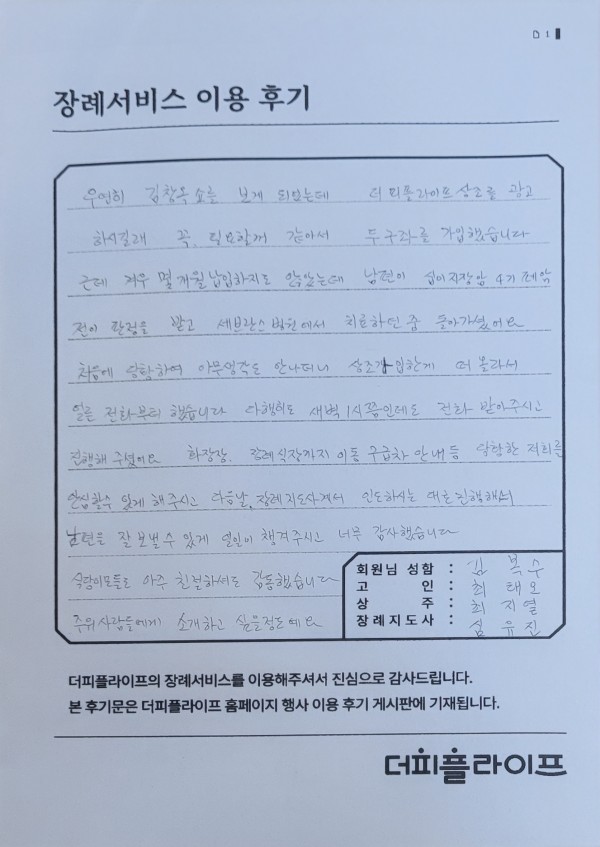 D1
장례서비스 이용 후기
우연히 김창옥쇼를 보게 되었는데 더피플라이프상조를 광고
하시길래 꼭 필요할게 같아서 두구좌를 가입했습니다
근데 겨우 몇개월납입하지도 않았는데 남편이 십이지장암 4기 폐암
전이 판정을 받고 세브란스병원에서 치료하던중 돌아가셨어요
처음에 당황하여 아무생각도 안나더니 상조가입한게 떠올라서
일른 전화부터 했습니다 다행히도 새벽 1시쯤인데도 전화 받아주시고
진행해 주셨어요 화장장, 장례식장까지 이동 구급차 안내등 당황한 저희를
안심할수 있게 해주시고 다음날, 장례지도사께서 인도하시는 대로 진행해서
남편을 잘 보낼수 있게 일일이 챙겨주시고 너무 감사했습니다
식당이모들도 아주 친절하셔도 감동했습니다
주위사람들에게 소개하고 싶을정도예요
회원님 성함 : 김복수
고인 : 최태오
상주 : 최지열
장례지도사 : 심유진
더피플라이프의 장례서비스를 이용해주셔서 진심으로 감사드립니다.
본 후기문은 더피플라이프 홈페이지 행사 이용 후기 게시판에 기재됩니다.
더피플라이프